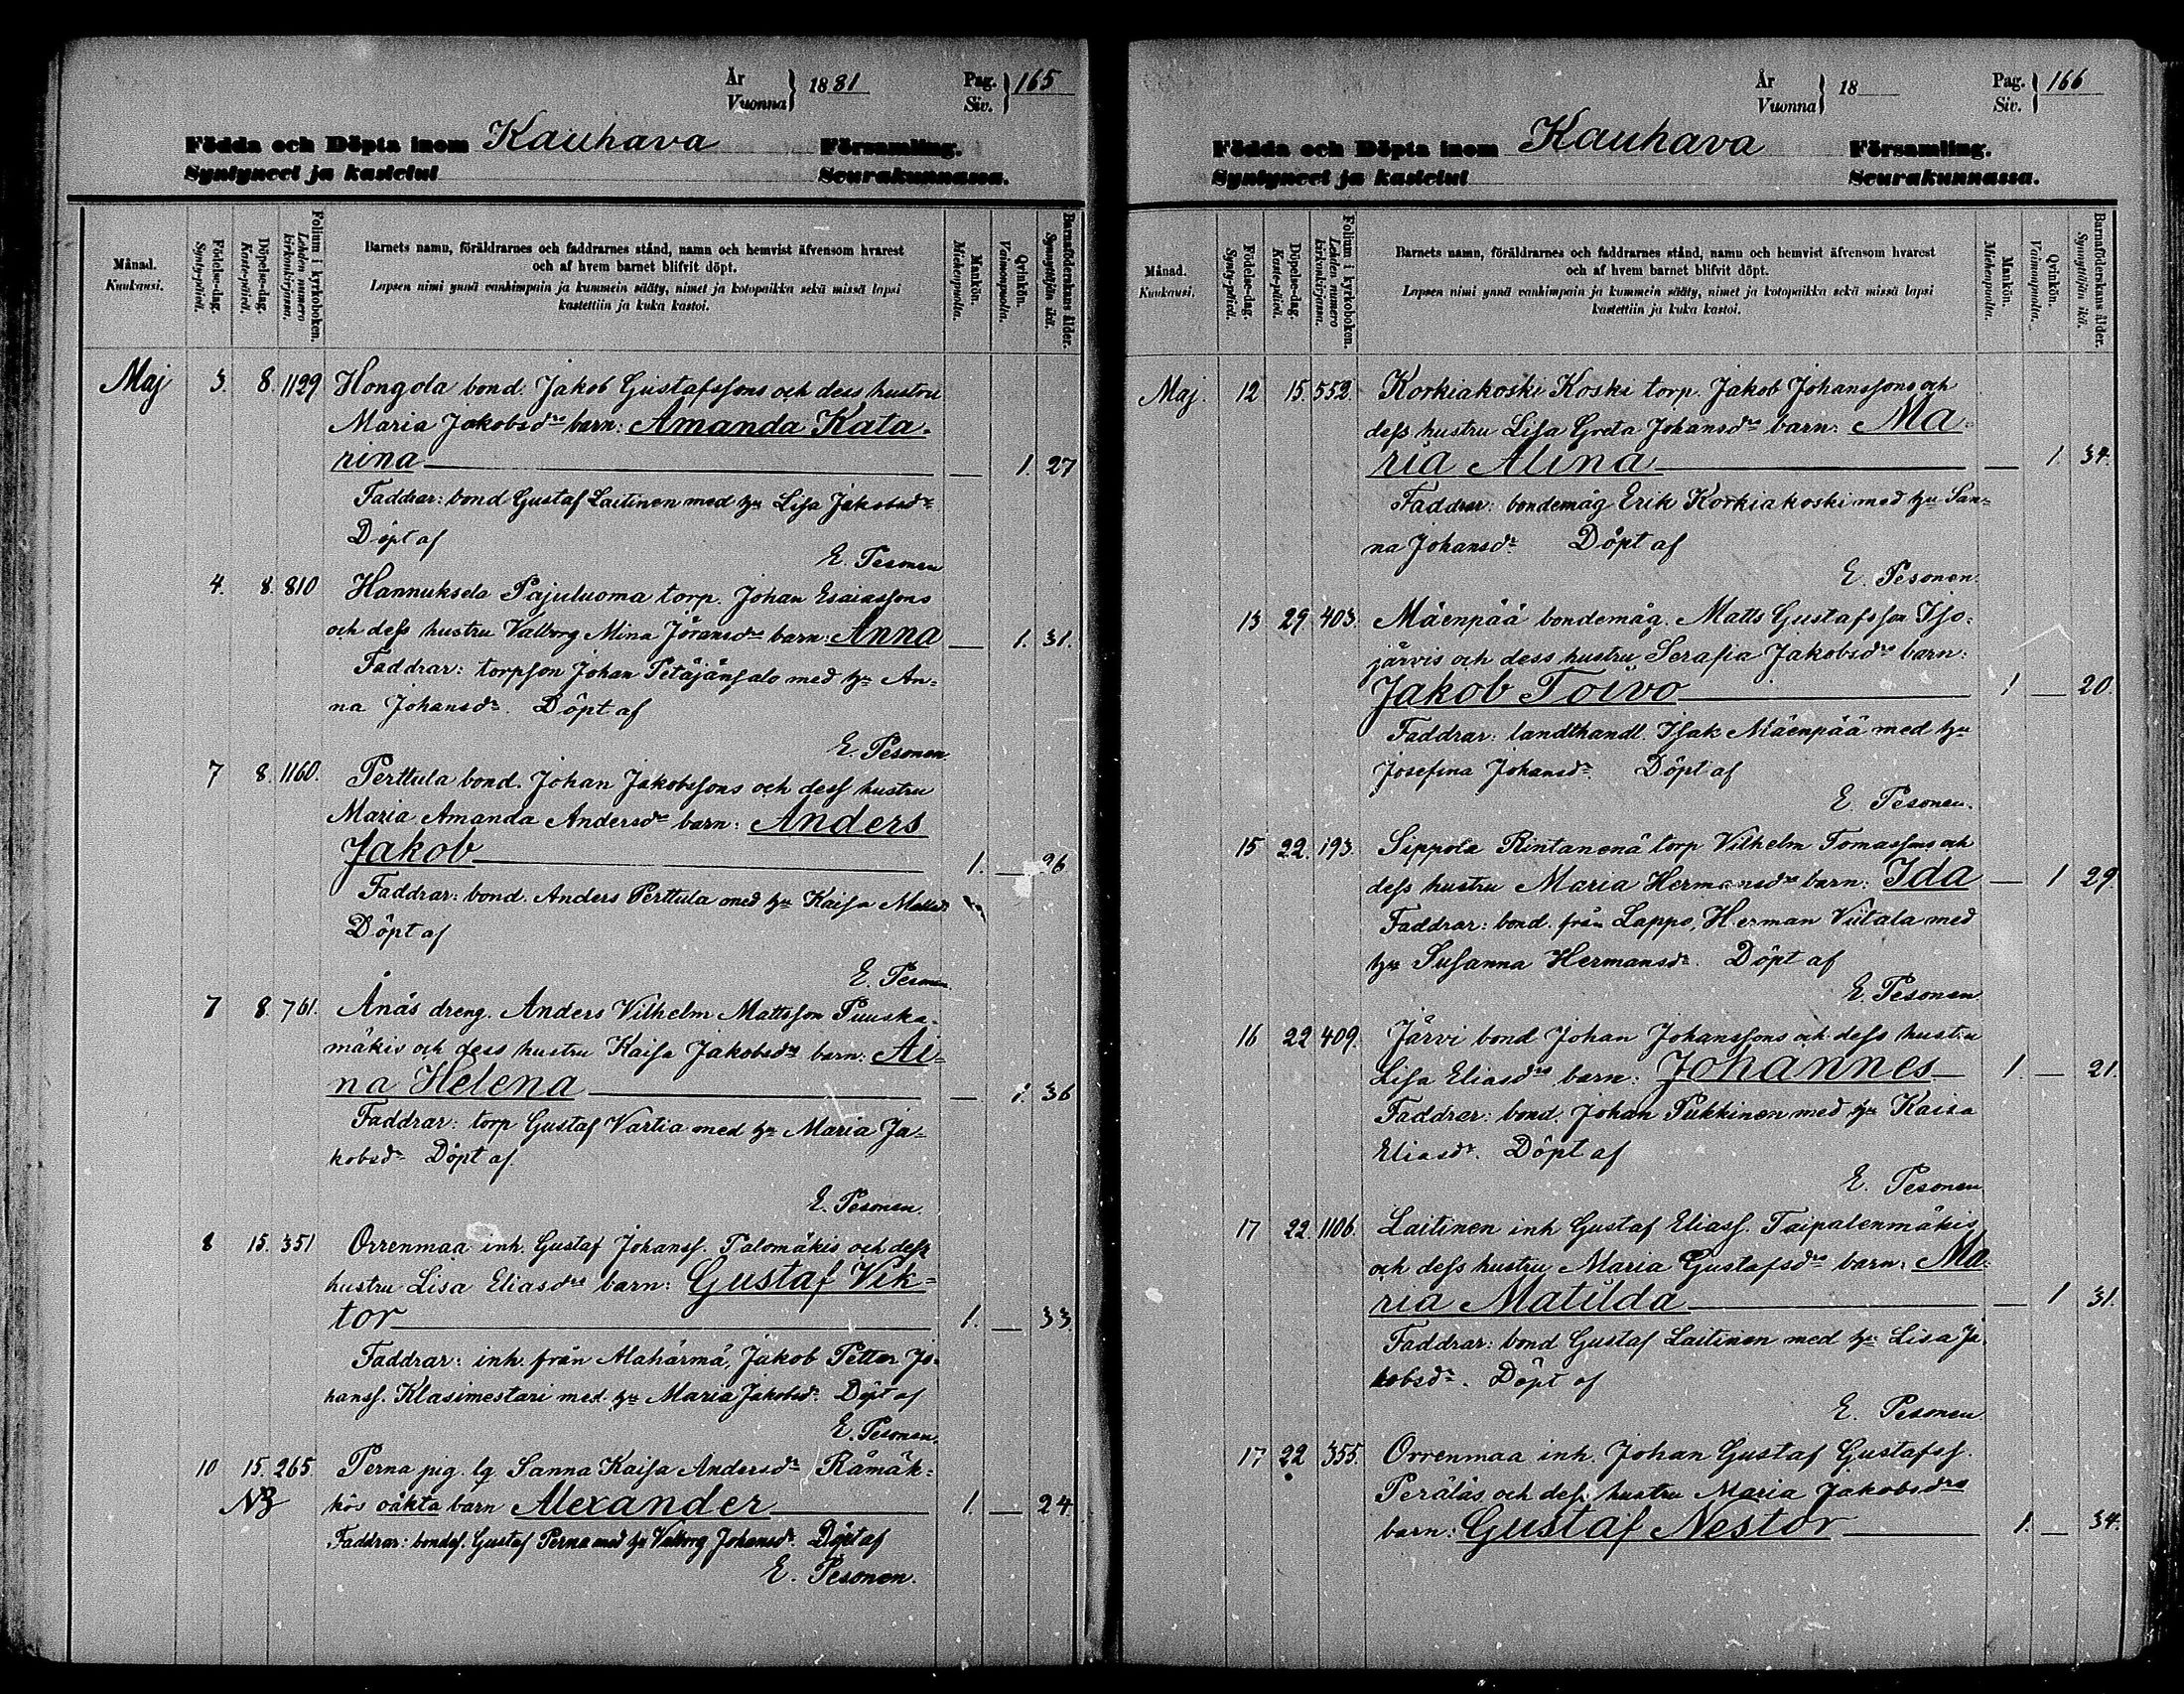 År
Vuonna } 1881
Pag.
Siv. } 165
Födda och Döpta inom Kauhava Församling.
Syntyneet ja kastetut Seurakunnassa.
Månad.
Kuukausi.
Födelse-dag.
Synty-päivä.
Döpelse-dag.
Kaste-päivä.
Folium i kyrkoboken.
Lehden numero
kirkonkirjassa.
Barnets namn, föräldrarnes och faddrarnes stånd, namn och hemvist äfvensom hvarest
och af hvem barnet blifvit döpt.
Lapsen nimi ynnä vanhimpain ja kummein sääty, nimet ja kotopaikka sekä missä lapsi
kastettiin ja kuka kastoi.
Mankön.
Miehenpuolia.
Qvinkön.
Vaimonpuolia.
Barnaföderskans ålder.
Synnyttäjän ikä.
Maj 3. 8. 1129 Hongola bond. Jakob Gustafssons och dess hustru
Maria Jakobsdrs barn: Amanda Kata-
rina — 1. 27
Faddrar: bond Gustaf Laitinen med hu Lisa Jakobsdr
Döpt af
E. Pesonen
4. 8. 810 Hannuksela Pajuluoma torp. Johan Esaiassons
och dess hustru Valborg Mina Jöransdrs barn: Anna — 1. 31.
Faddrar: torpson Johan Petäjänsalo med hu An-
na Johansdr. Döpt af
E. Pesonen
7 8. 1160. Perttula bond. Johan Jakobssons och dess hustru
Maria Amanda Andersdrs barn: Anders
Jakob 1. — 26
Faddrar: bond. Anders Perttula med hu Kaisa Mattsdr
Döpt af
E. Pesonen.
7 8. 761. Ånäs dreng. Anders Vilhelm Mattsson Puuska-
mäkis och dess hustru Kaisa Jakobsdrs barn: Al-
na Helena — 1. 36
Faddrar: torp Gustaf Vartia med hu Maria Ja-
kobsdr Döpt af.
E. Pesonen.
8 15. 351 Orrenmaa inh. Gustaf Johanss. Palomäkis och dess
hustru Lisa Eliasdrs barn: Gustaf Vik-
tor 1. — 33.
Faddrar: inh. från Alahärmä, Jakob Petter Jo-
hanss. Klasimestari med. hu Maria Jakobsdr. Döpt af
E. Pesonen.
10 15. 265. Perna pig. lg Sanna Kaisa Andersdr Rämäk-
NB kös oäkta barn Alexander 1. — 24.
Faddrar: bonds. Gustaf Perna med hu Valborg Johansdr. Döpt af
E. Pesonen.
År
Vuonna } 18
Pag.
Siv. } 166
Födda och Döpta inom Kauhava Församling.
Syntyneet ja kastetut Seurakunnassa.
Månad.
Kuukausi.
Födelse-dag.
Synty-päivä.
Döpelse-dag.
Kaste-päivä.
Folium i kyrkoboken.
Lehden numero
kirkonkirjassa.
Barnets namn, föräldrarnes och faddrarnes stånd, namn och hemvist äfvensom hvarest
och af hvem barnet blifvit döpt.
Lapsen nimi ynnä vanhimpain ja kummein sääty, nimet ja kotopaikka sekä missä lapsi
kastettiin ja kuka kastoi.
Mankön.
Miehenpuolia.
Qvinkön.
Vaimonpuolia.
Barnaföderskans ålder.
Synnyttäjän ikä.
Maj. 12 15. 552. Korkiakoski Koski torp. Jakob Johanssons och
dess hustru Lisa Greta Johansdrs barn: Ma-
ria Alina — 1. 34.
Faddrar: bondemåg Erik Korkiakoski med hu San-
na Johansdr. Döpt af
E. Pesonen.
13 29. 403. Mäenpää bondemåg. Matts Gustafsson Iso-
järvis och dess hustru Serafia Jakobsdrs barn:
Jakob Toivo 1 — 20.
Faddrar: landthandl. Isak Mäenpää med hu
Josefina Johansdr. Döpt af
E. Pesonen.
15 22. 193. Sippola Rintanenä torp Vilhelm Tomassons och
dess hustru Maria Hermansdrs barn: Ida — 1 29.
Faddrar: bond. från Lappo, Herman Viitala med
hu Susanna Hermansdr. Döpt af
E. Pesonen
16 22 409. Järvi bond Johan Johanssons och dess hustru
Lisa Eliasdrs barn: Johannes 1. — 21.
Faddrar: bond. Johan Pukkinen med hu Kaisa
Eliasdr. Döpt af
E. Pesonen
17 22. 1106. Laitinen inh Gustaf Eliass. Taipalenmäkis
och dess hustru Maria Gustafsdrs barn: Ma-
ria Matilda — 1 31.
Faddrar: bond Gustaf Laitinen med hu Lisa Ja-
kobsdr. Döpt af
E. Pesonen
17 22 355. Orrenmaa inh. Johan Gustaf Gustafss.
Peräläs och dess hustru Maria Jakobsdrs
barn: Gustaf Nestor 1. — 34.